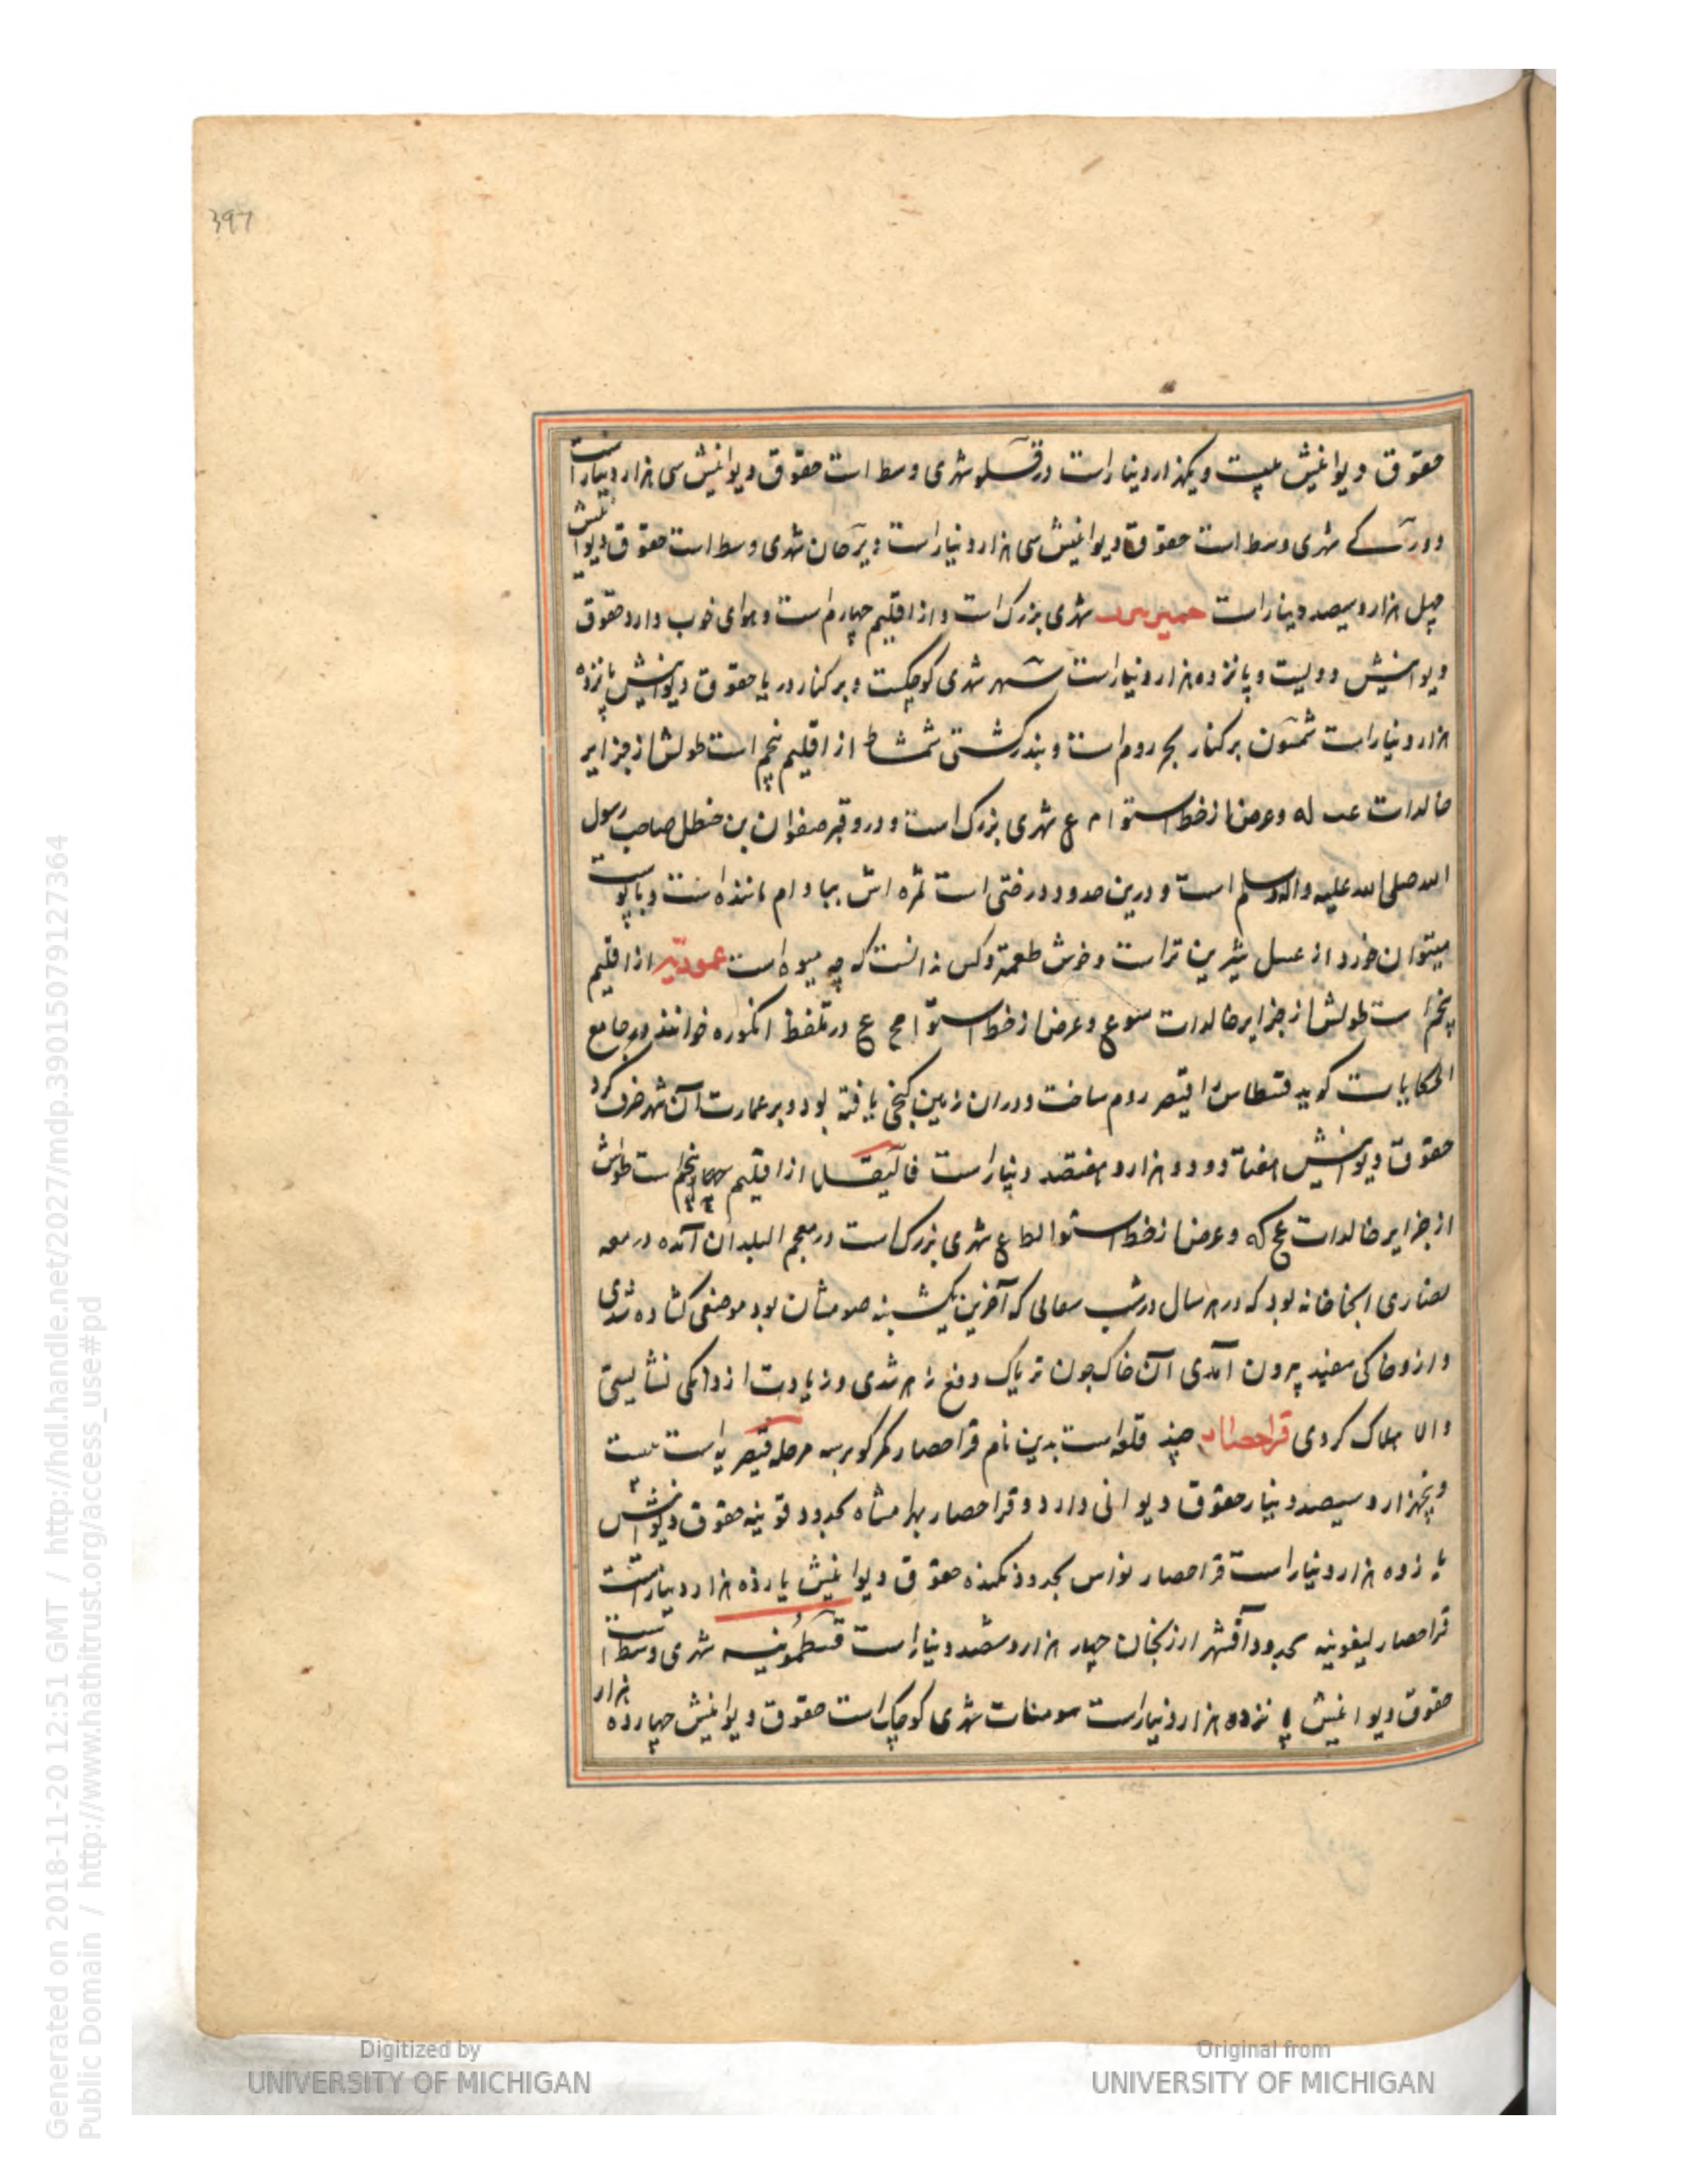 397
حقوق دیوانیش بیست ویکهزار دینار است درقسلو شهری وسط است حقوق دیوانیش سی هزار دینار است
شهری وسط است حقوق دیوانیش سی هزار دینار است شهری وسط است حقوق دیوانیش
چهل هزار و سیصد دینار است شهری بزرگ است و از اقلیم چهارم است و هوای خوب دارد حقوق
دیوانیش دویست و پانزده هزار دینار است شهری کوچکست و بر کنار دریا حقوق دیوانیش پانزده
هزار دینار است شمسون بر کنار بحر روم است و بندر کشتی شمشاط از اقلیم پنجم است طولش از جزایر
خالدات عب له وعرض از خط استوا م ع شهری بزرگ است و درو قبر صفوان بن حنظل صاحب رسول
الله صلی الله علیه واله وسلم است و درین حدود درختی است ثمره اش ببادام ماننده است و با پوست
میتوان خورد از عسل شیرین تر است و خوش طعمتر وکس ندانست که چه میوه است عموریه از اقلیم
پنجم است طولش از جزایر خالدات وعرض از خط استوا مج ع در تلفظ انکوره خوانند در جامع
الحکایات کوید قسطاس قیصر روم ساخت ودران زمین کنجی یافته بود و بر عمارت آن شهر خرف کرد
حقوق دیوانیش هفتاد ودو هزار و هفتصد دینار است قالیقلا از اقلیم پنجم است طولش
از جزایر خالدات عج که وعرض از خط استوا لط ع شهری بزرگ است در معجم البلدان آمده در بیعه
نصاری انجا خانه بود که در هر سال در شب که آخرین یکشنبه صومشان بود موضعی کشاده شدی
وازو خاکی سفید بیرون آمدی آن خاک چون تریاک دفع زهر شدی و زیادت از دانکی نشایستی
والا هلاک کردی قراحصار چند قلعه است بدین نام قراحصار کمرکو بر سه مرحله قیصریه است بیست
وپنجهزار و سیصد دینار حقوق دیوانی دارد و قراحصار بهرامشاه بحدود قونیه حقوق دیوانیش
یازده هزار دینار است قراحصار نواس بحدود نکیده حقوق دیوانیش یازده هزار دینار است
قراحصار لیغونیه بحدود آقشهر ارزنجان چهار هزار و ششصد دینار است قسطمونیه شهری وسط است
حقوق دیوانیش پانزده هزار دینار است سومنات شهری کوچک است حقوق دیوانیش چهارده هزار
Digitized by
UNIVERSITY OF MICHIGAN
Original from
UNIVERSITY OF MICHIGAN
Generated on 2018-11-20 12:51 GMT / http://hdl.handle.net/2027/mdp.39015079127364
Public Domain / http://www.hathitrust.org/access_use#pd